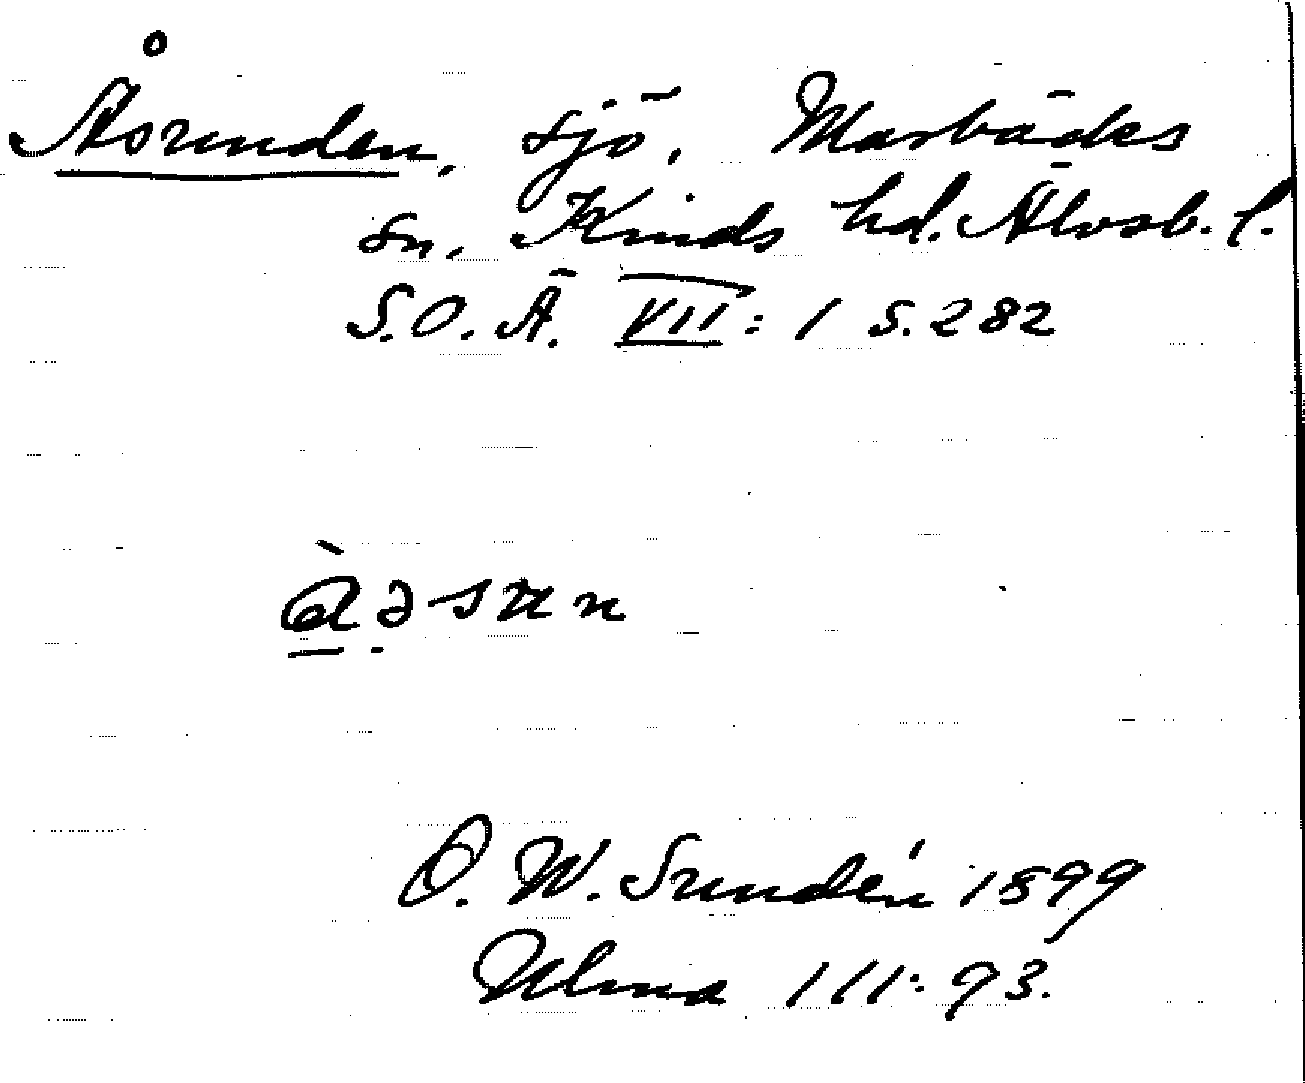 Åsunden, sjö, Marbäcks
sn, Kinds hd. Älvsb. l.
S.O.Ä. VII: 1 s. 282
D. W. Sundén 1899
Ulma 111:93.